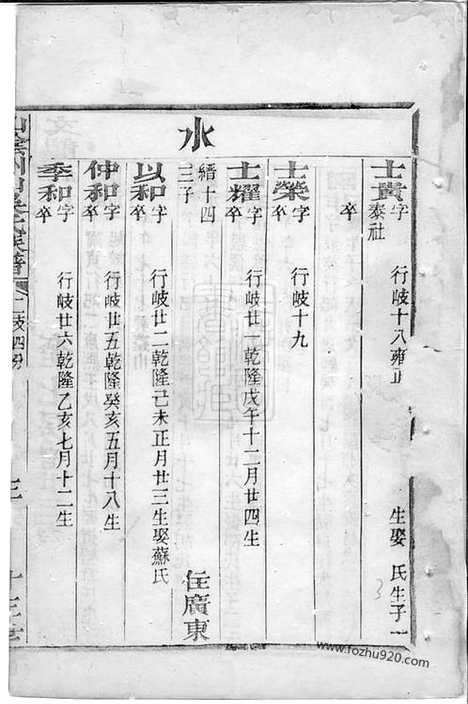 水
士貴字泰社 行岐十八雍正 生娶 氏生子一
卒
士榮字 行岐十九
卒
士耀字 行岐廿一乾隆戊午十二月廿四生
卒
縉十四三子 住廣東
以和字 行岐廿二乾隆己未正月廿三生娶蘇氏
卒
仲和字 行岐廿五乾隆癸亥五月十八生
卒
季和字 行岐廿六乾隆乙亥七月十二生
卒
3
www.fozhu920.com